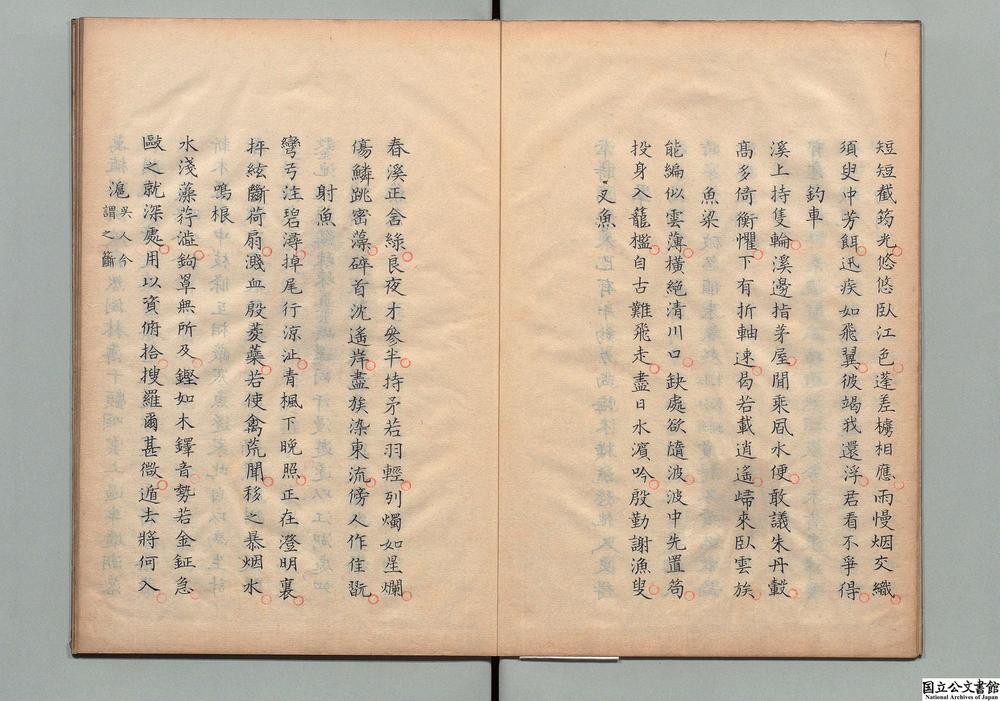 短短截筠光悠悠臥江色蓬差樯相應雨慢烟交織
須臾中芳餌迅疾如飛翼彼竭我還浮君看不爭得
釣車
溪上持隻輪溪邊指茅屋聞乘風水便敢議朱丹轂
高多倚衡懼下有折軸速曷若載逍遙歸來臥雲族
魚梁
能編似雲薄橫絕清川口缺處欲隨波波中先置笱
投身入籠檻自古難飛走盡日水濱吟殷勤謝漁叟
叉魚
春溪正含綠良夜才參半持矛若羽輕列燭如星爛
傷鱗跳密藻碎首沈遙岸盡族染東流傍人作佳翫
射魚
彎弓注碧潯掉尾行涼沚青楓下晚照正在澄明裏
抨絃斷荷扇濺血殷菱蘂若使禽荒聞移之暴烟水
鳴根
水淺藻荇澁釣罩無所及鏗如木鐸音勢若金鉦急
敺之就深處用以資俯拾搜羅爾甚微遁去將何入
滬 吳人今謂之籪
国立公文書館
National Archives of Japan